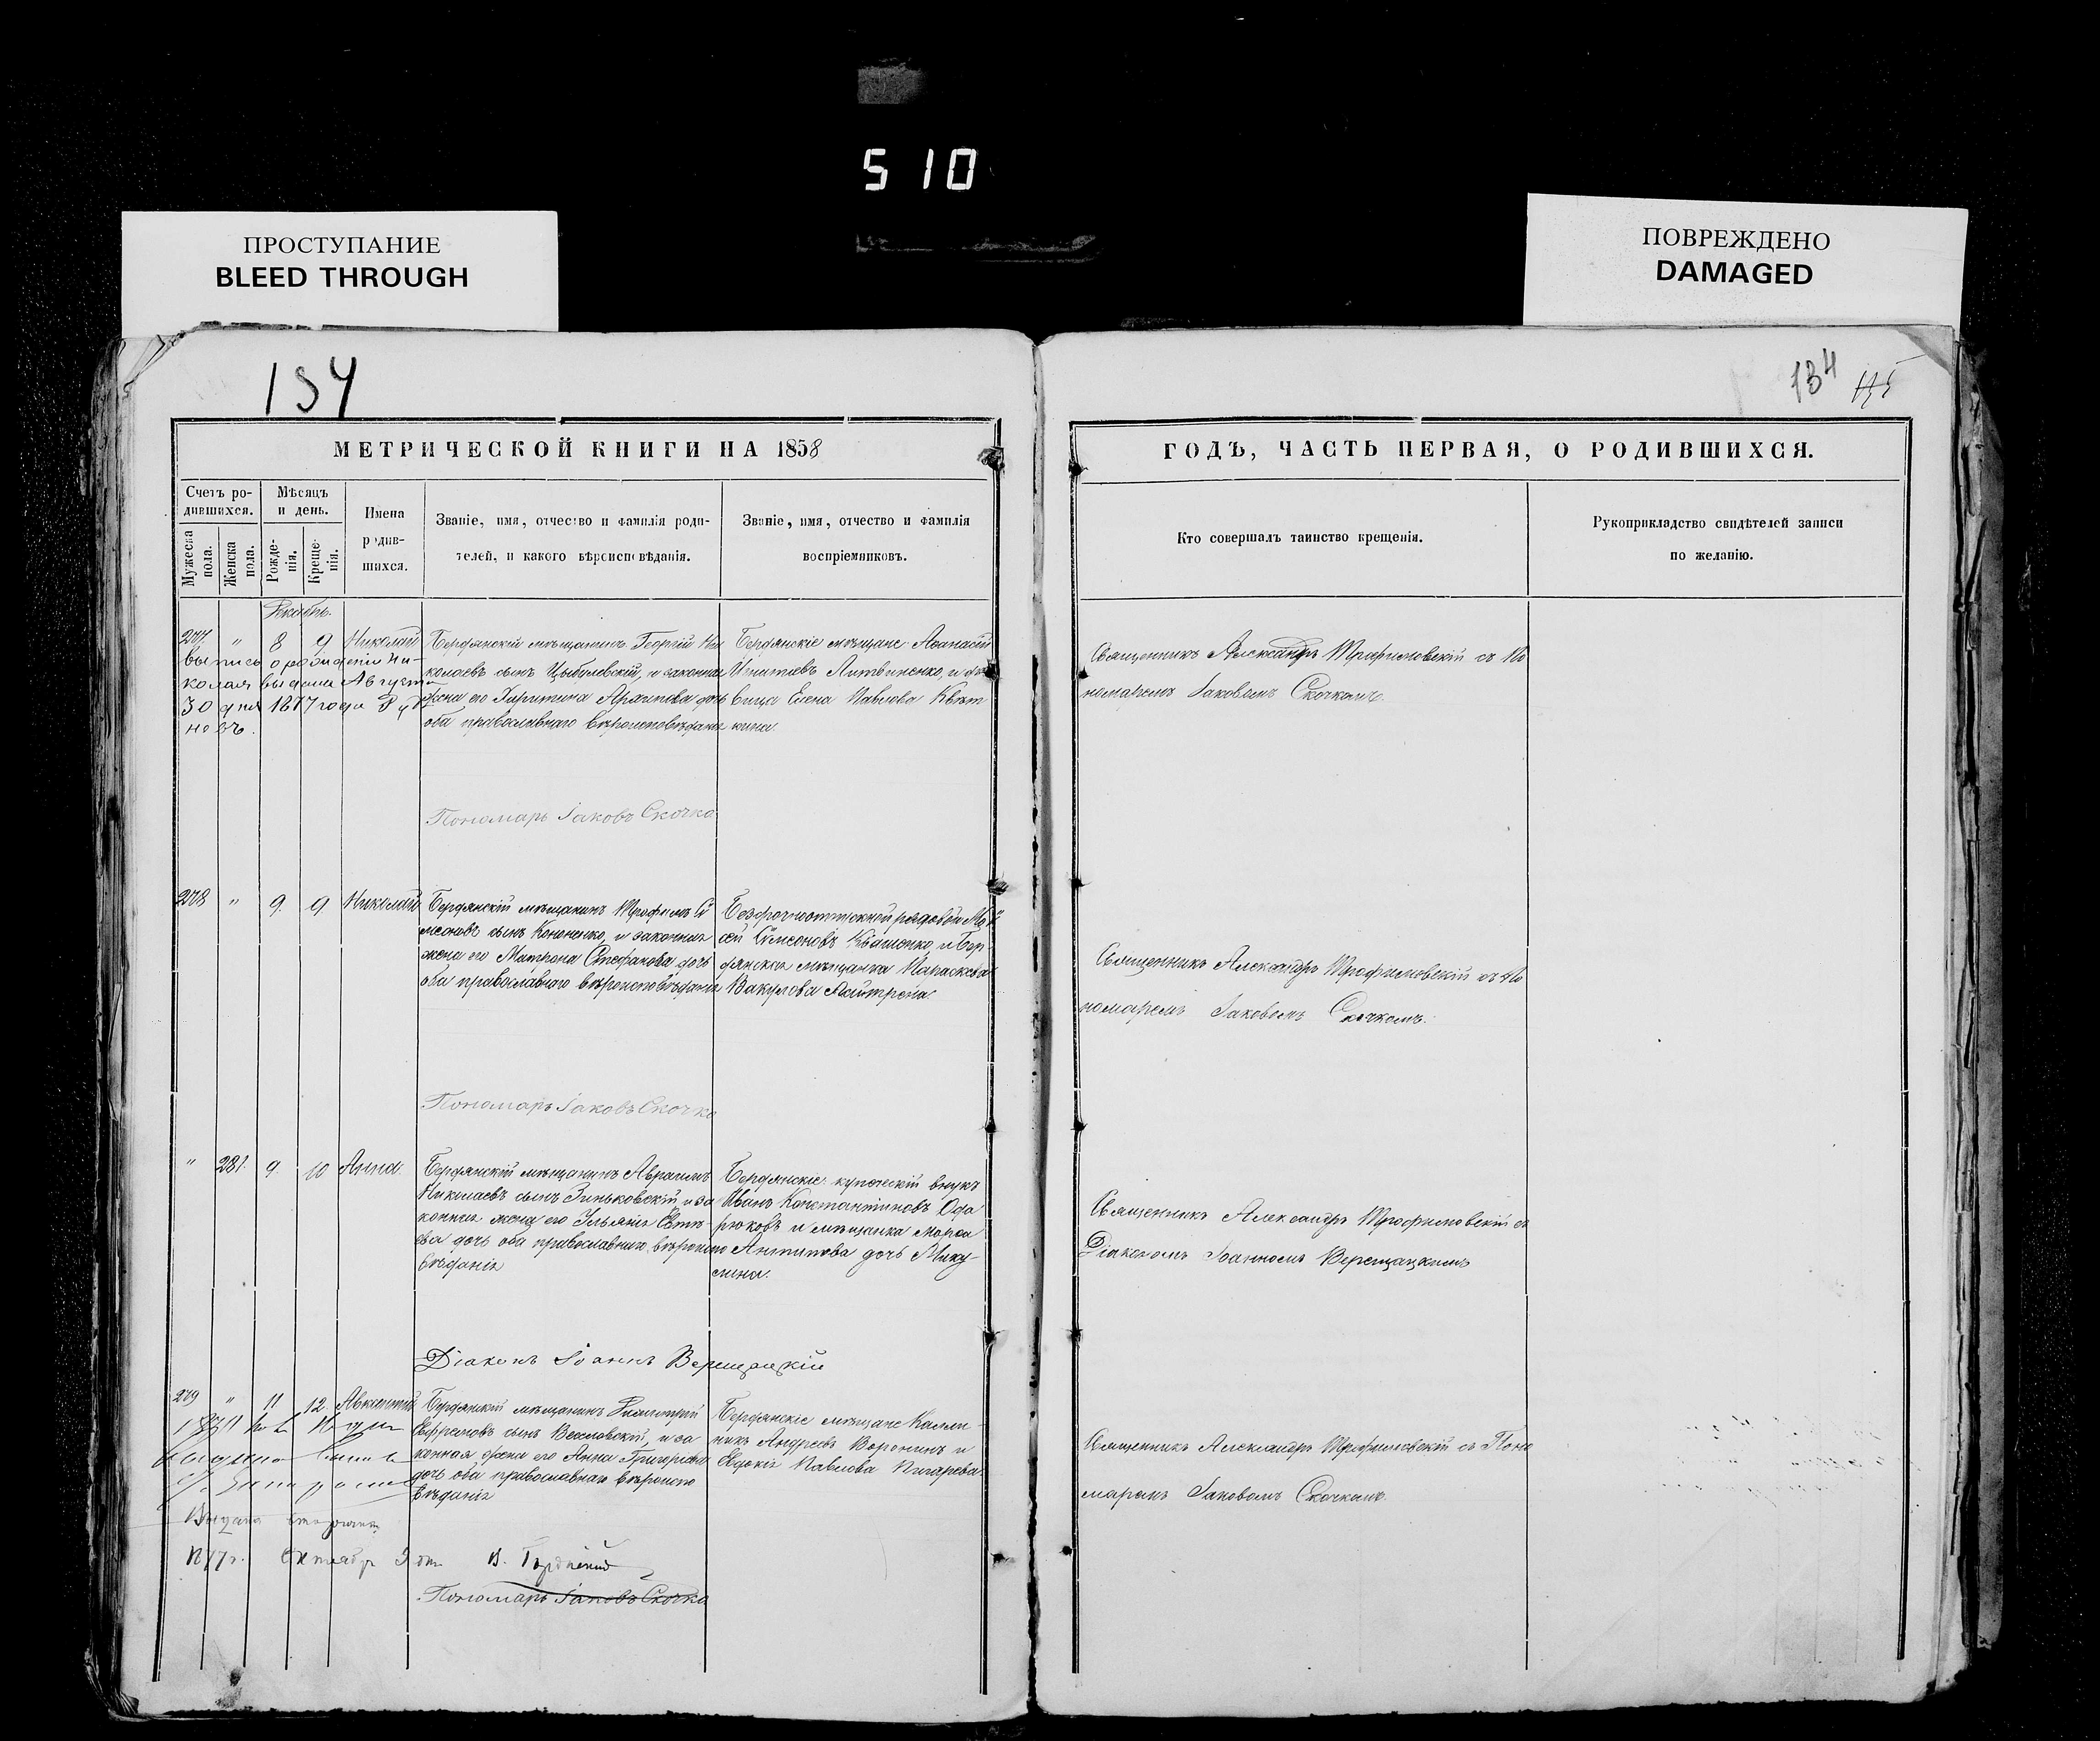 510
ПРОСТУПАНИЕ
BLEED THROUGH
ПОВРЕЖДЕНО
DAMAGED
134
134
МЕТРИЧЕСКОЙ КНИГИ НА 1858
ГОДЪ, ЧАСТЬ ПЕРВАЯ, О РОДИВШИХСЯ.
Счетъ ро-
дившихся.
Мужеска
пола.
Женска
пола.
Мѣсяцъ
и день.
Рожде-
нія.
Креще-
нія.
Имена
родив-
шихся.
Званіе, имя, отчество и фамилія роди-
телей, и какого вѣроисповѣданія.
Званіе, имя, отчество и фамилія
воспріемниковъ.
Кто совершалъ таинство крещенія.
Рукоприкладство свидѣтелей записи
по желанію.
277 " 8 9 Николай
выпись о рождении Ни-
колая выдана Августа
30 дня 1877 года
Бердянскій мѣщанинъ Георгій Ни
колаевъ сынъ Цыбулевскій, и законная
жена его Архипова дочь
оба православнаго вѣроисповѣданія
Бердянскіе мѣщане: Аѳанасій
Игнатіевъ Литвиненко, и
вица Елена Павлова Квѣт
кина.
Священникъ Александръ Трофимовскій съ По
номаремъ Іаковомъ Скочкомъ.
Пономарь Іаковъ Скочко
278 " 9. 9 Николай
Бердянскій мѣщанинъ Трофимъ Си
меоновъ сынъ Кононенко, и законная
жена его Матрона Стефанова дочь
оба православнаго вѣроисповѣданія
Безсрочноотпускной рядовой Мой
сей Симеоновъ Квашенко и Бер
дянская мѣщанка Параскева
Вакулова
Священникъ Александръ Трофимовскій съ По
номаремъ Іаковомъ Скочкомъ.
Пономарь Іаковъ Скочко
" 281. 9. 10 Анна.
Бердянскій мѣщанинъ Авраамъ
Николаевъ сынъ Зиньковскій и за
конная жена его Ульянія
ева дочь оба православнаго вѣроиспо
вѣданія
Бердянскіе: купеческій внукъ
Иванъ Константиновъ Ода
рюковъ и мѣщанка Марѳа
Антипова дочь Мику-
лина.
Священникъ Александръ Трофимовскій съ
Діакономъ Іоанномъ Верещацкимъ
Діаконъ Іоаннъ Верещацкій
279 " 11 12. Авксентій
Бердянскій мѣщанинъ Димитрій
Ефремовъ сынъ Веселовскій, и за
конная жена его Анна Григорьева
дочь оба православнаго вѣроиспо
вѣданія
Бердянскіе мѣщане Калли
никъ Андреевъ Воронинъ и
Евдокія Павлова Пигарева.
Священникъ Александръ Трофимовскій съ Поно
маремъ Іаковомъ Скочкомъ.
Выдана вторично
1877 г. Октября
Пономарь Іаковъ Скочко